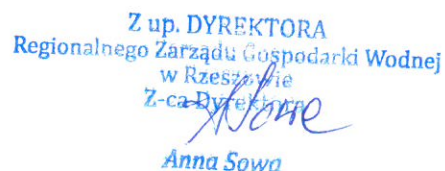 Z up. DYREKTORA
Regionalnego Zarządu Gospodarki Wodnej
w Rzeszowie
Z-ca Dyrektora
Anna Sowa